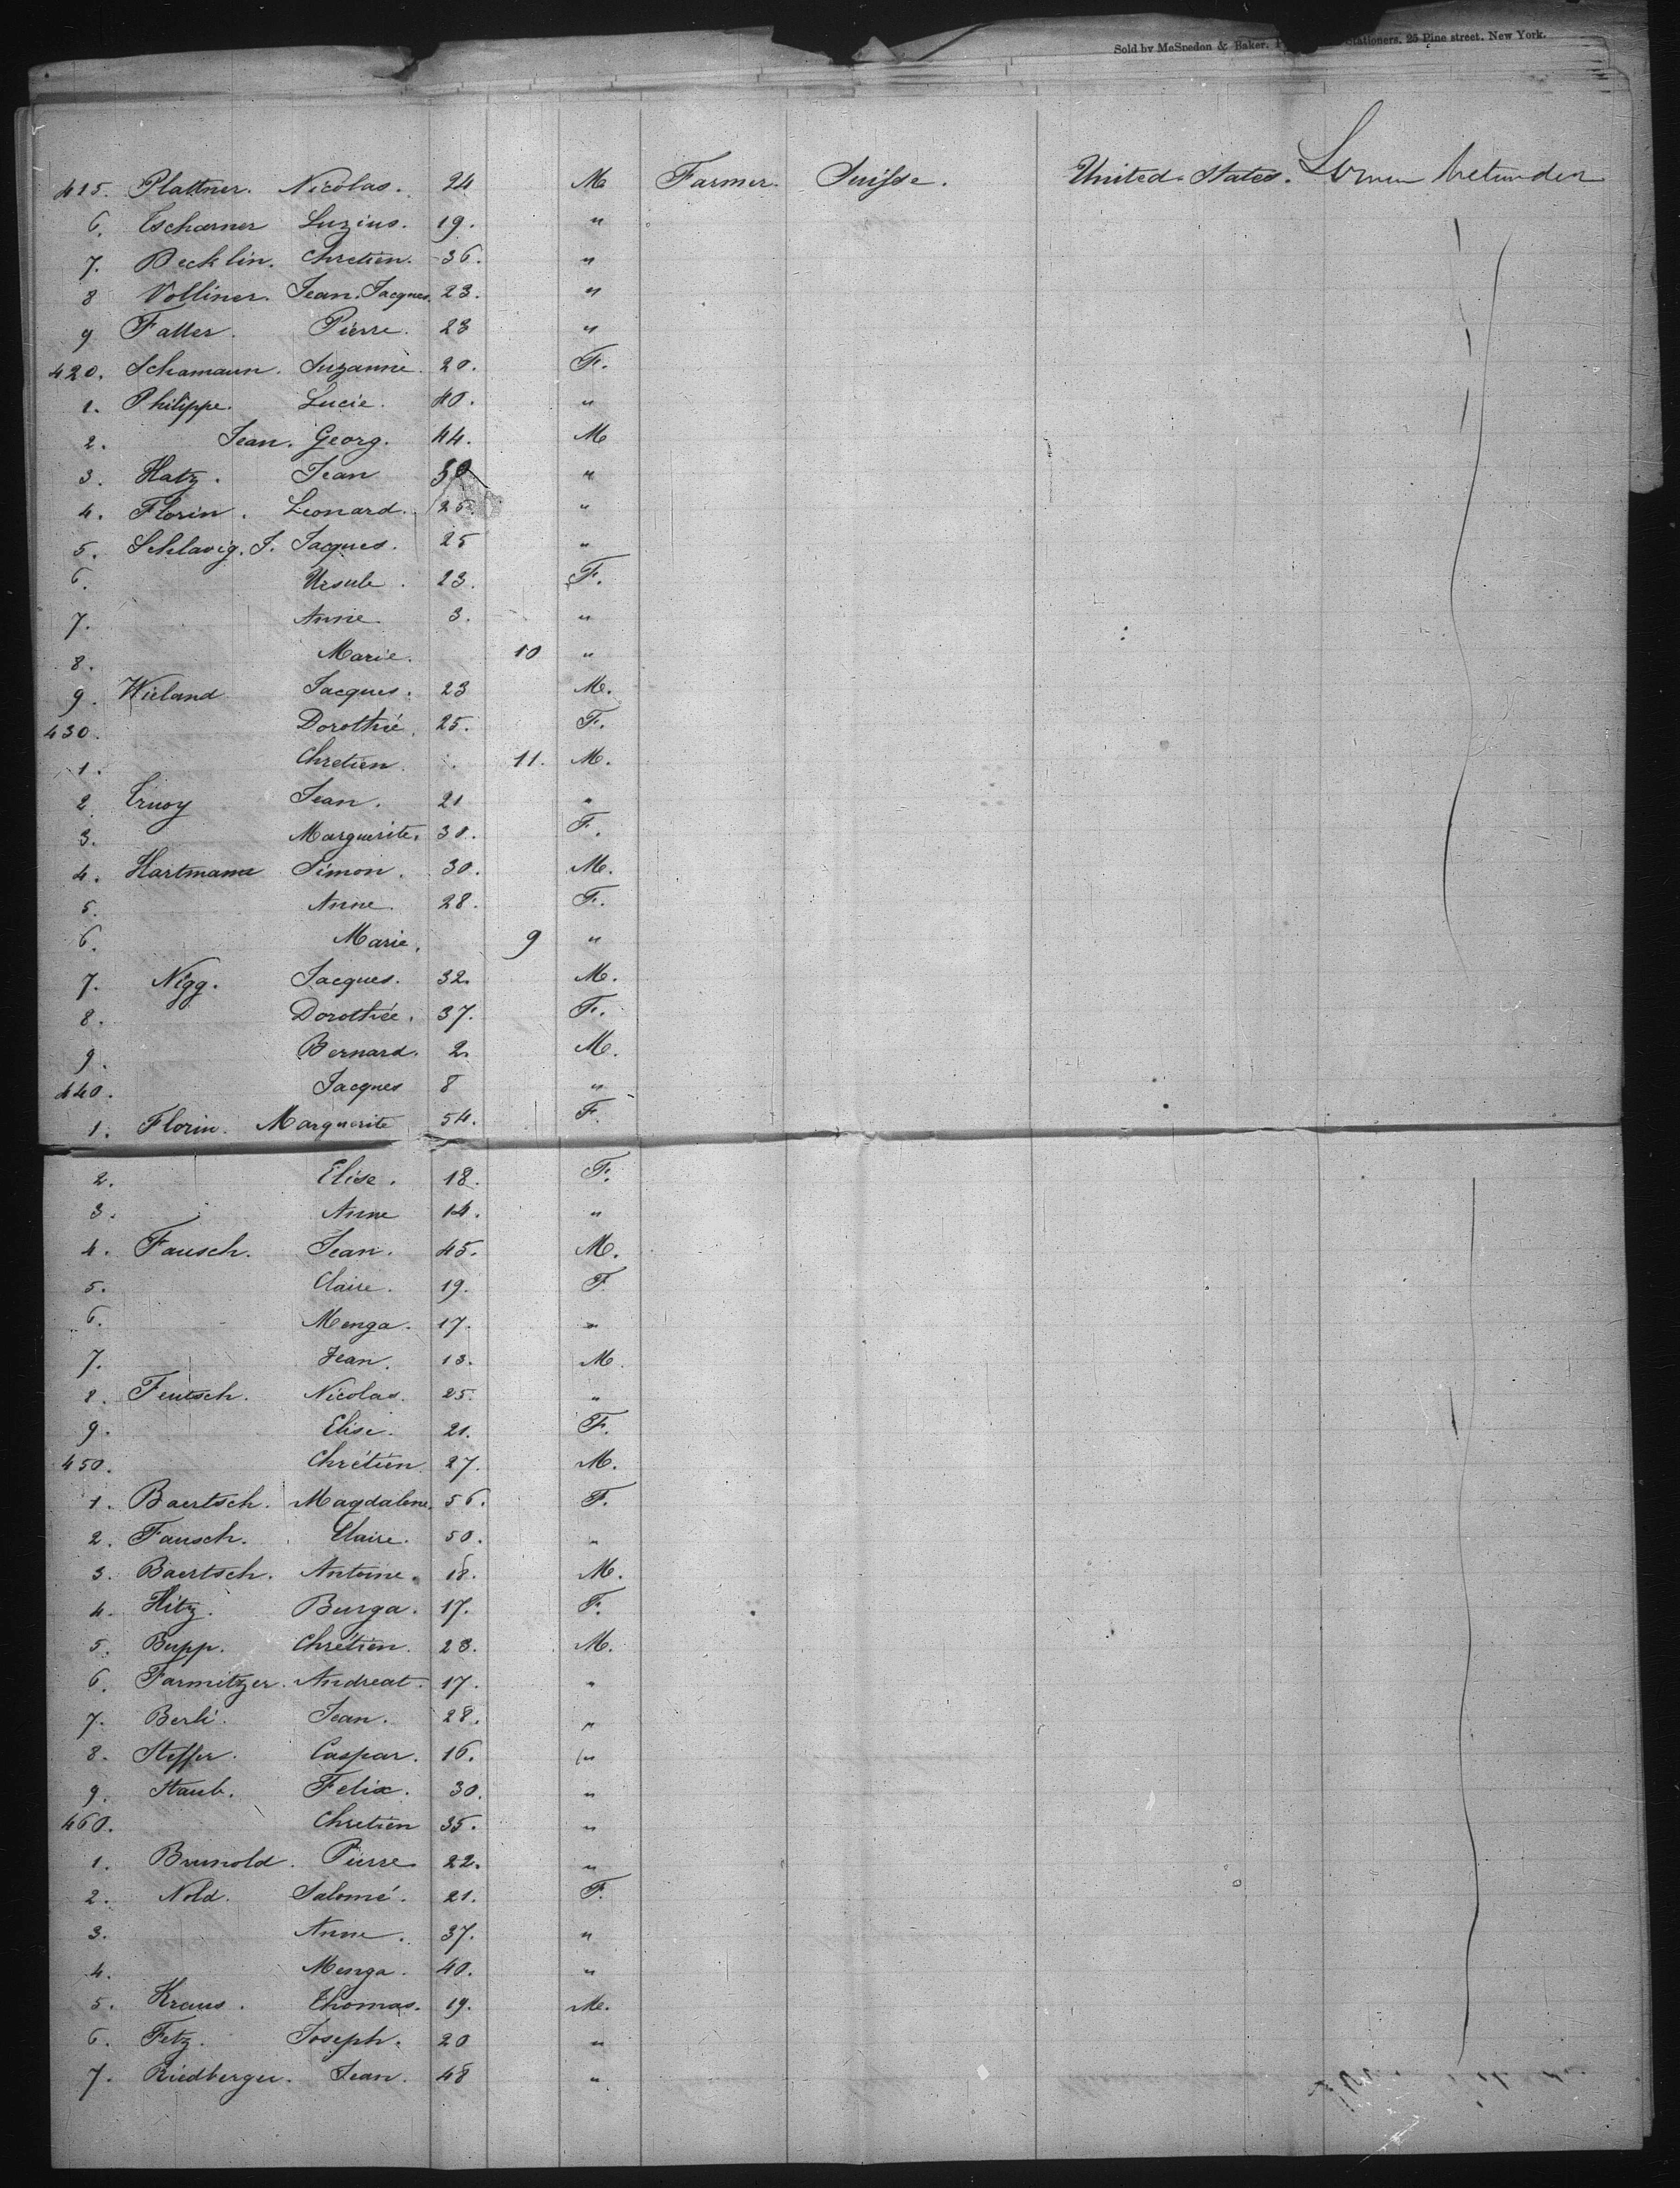 Sold by McSpedon & Baker, Stationers, 25 Pine street, New York.
415. Plattner. Nicolas. 24 M Farmer. Suisse. United States. Lower between decks
6. Tscharner Luzius. 19. "
7. Becklin. Chretien. 36. "
8 Volliner. Jean. Jacques. 23. "
9 Faller. Pierre. 23 "
420. Schamaun. Suzanne. 20. F.
1. Philippe. Lucie. 40. "
2. Jean. Georg. 44. M
3. Hatz. Jean 30 "
4. Florin. Leonard. 25. "
5. Schlavig. J. Jacques. 25 "
6. Ursule. 23. F.
7. Anne. 3. "
8. Marie. 10 "
9. Wieland Jacques. 23 M.
430. Dorothée. 25. F.
1. Chretien. 11. M.
2 Jean. 21 "
3. Marguerite. 30. F.
4. Hartmann Simon. 30. M.
5. Anne. 28. F.
6. Marie. 9 "
7. Nigg. Jacques. 32. M.
8. Dorothée. 37. F.
9. Bernard. 2. M.
440. Jacques 8 "
1. Florin. Marguerite 54. F.
2. Elise. 18. F.
3. Anne 14. "
4. Fausch. Jean. 45. M.
5. Claire. 19. F.
6. Menga. 17. "
7. Jean. 13. M.
8. Feutsch. Nicolas. 25. "
9. Elise. 21. F.
450. Chrétien 27. M.
1. Baertsch. Magdalene. 56. F.
2. Fausch. Claire. 50. "
3. Baertsch. Antoine. 18. M.
4. Hitz. Burga. 17. F.
5. Bupp. Chrétien. 23. M.
6. Farmitzer. Andreat. 17. "
7. Berli. Jean. 28. "
8. Steffer. Caspar. 16. "
9. Staub. Felix. 30. "
460. Chretien 35. "
1. Brunold. Pierre 22. "
2. Nold. Salomé. 21. F.
3. Anne. 37. "
4. Menga. 40. "
5. Kraus. Thomas. 19. M.
6. Fetz. Joseph. 20 "
7. Riedberger. Jean. 48 "